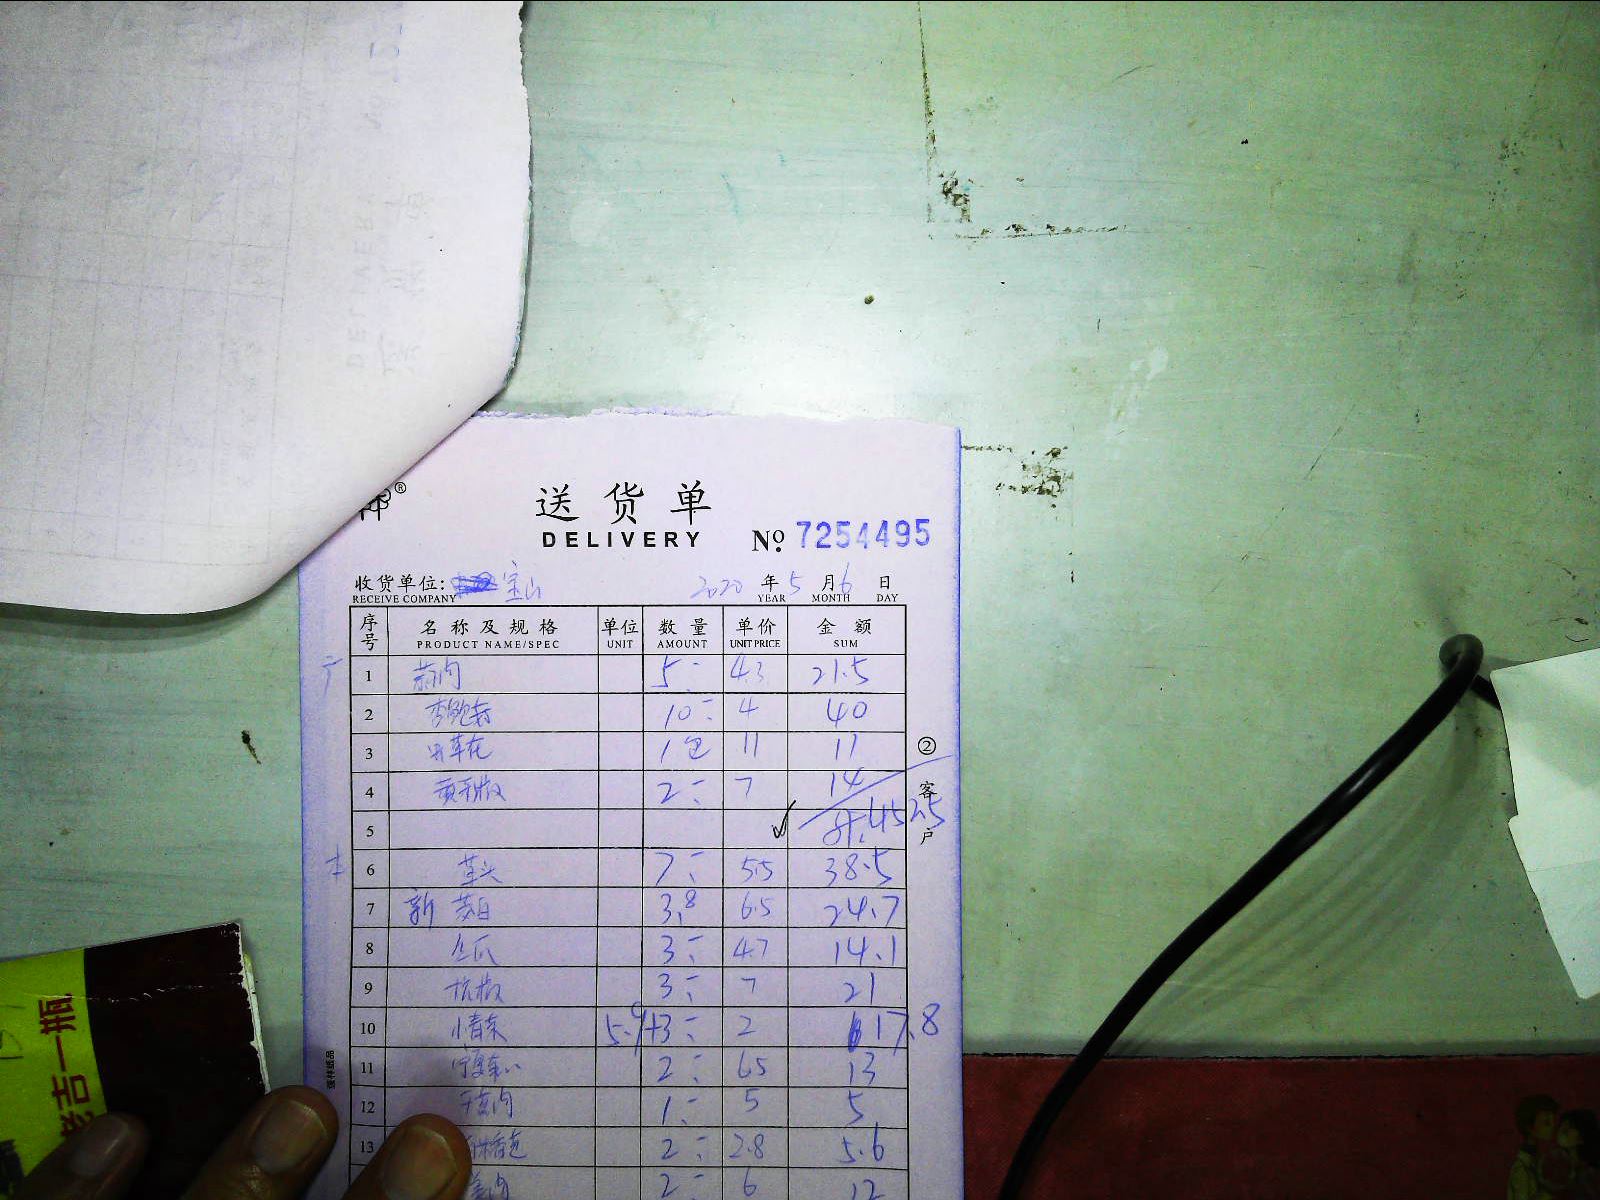 祥®
送货单
DELIVERY
No. 7254495
收货单位: 宝山 2020 年 5 月 6 日
RECEIVE COMPANY YEAR MONTH DAY
序号 名称及规格 单位 数量 单价 金额
PRODUCT NAME/SPEC UNIT AMOUNT UNIT PRICE SUM
1 蒜肉 5 43 21.5
2 杏鲍菇 10 4 40
3 虫草花 1包 11 11
4 黄彩椒 2 7 14
5
6 草头 7 5.5 38.5
7 新 茭白 3.8 6.5 24.7
8 丝瓜 3 4.7 14.1
9 杭椒 3 7 21
10 小青菜 5.9+3 2 17.8
11 宁夏菜心 2 65 13
12 干葱肉 1 5 5
13 2 2.8 5.6
2 6 12
② 客户
强林纸品
吉一瓶